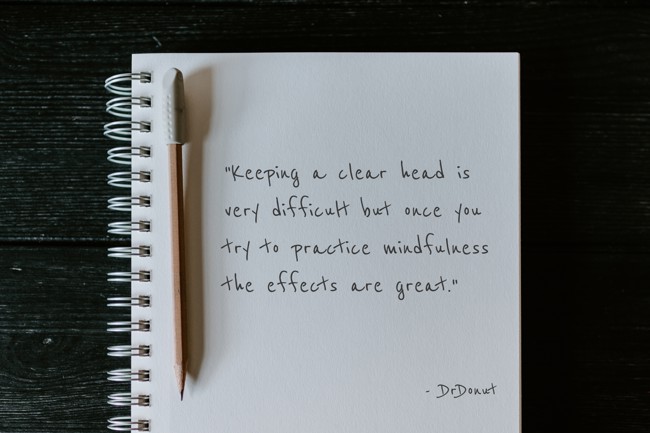 "Keeping a clear head is
very difficult but once you
try to practice mindfulness
the effects are great."
- DrDonut